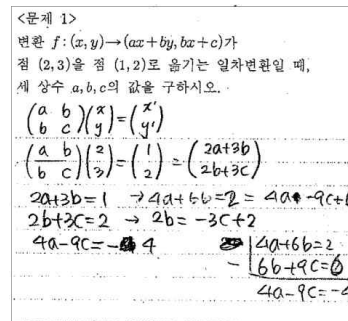 <문제 1>
변환 f:(x,y)→(ax+by,bx+c)가
점 (2,3)을 점 (1,2)로 옮기는 일차변환일 때,
세 상수 a,b,c의 값을 구하시오.
(a b b c)(x y)=(x' y')
(a b b c)(2 3)=(1 2)=(2a+3b 2b+3c)
2a+3b=1 →4a+6b=2= 4a -9c+
2b+3c=2 → 2b=-3c+2
4a-9c=- 4 4a+6b=2
- 6b+9c=6
4a-9c=-4